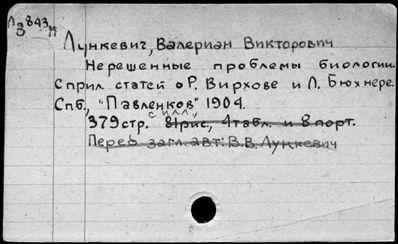 Л 843
3
Лункевич, Валериан Викторович
Нерешенные проблемы биологии.
С прил статей о Р. Вирхове и Л. Бюхнере.
Спб, "Павленков" 1904.
с илл.,
379 стр. 81 рис, 4 табл. и 8 порт.
Перед загл. авт: В.В. Лункевич